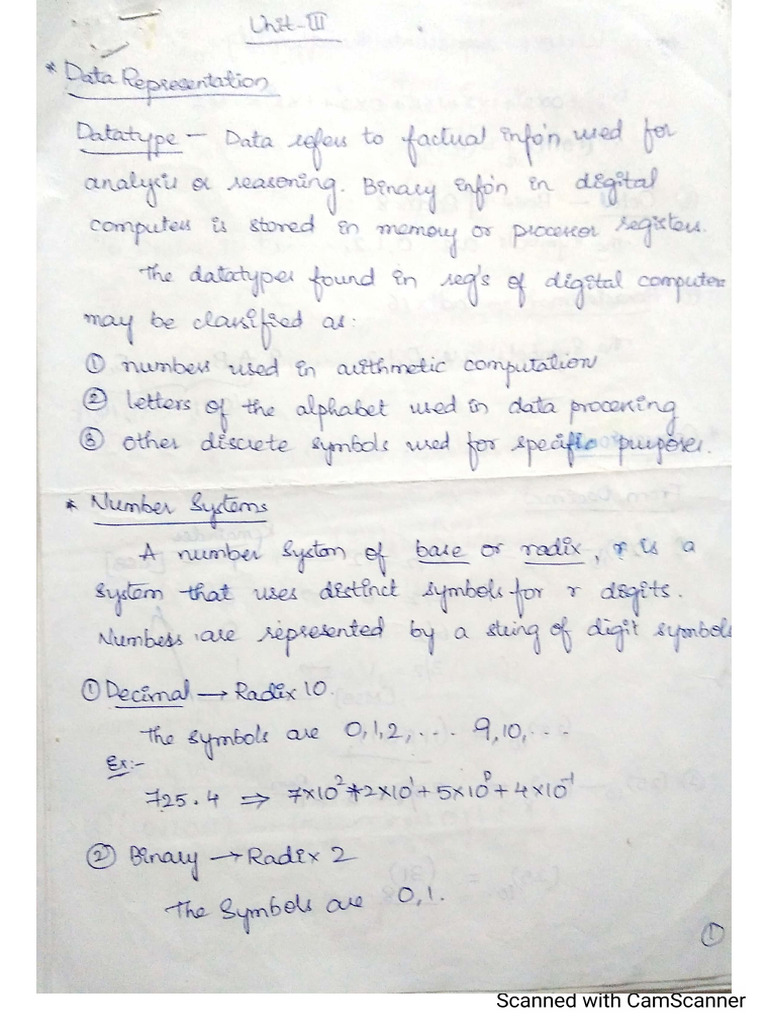 Unit-III
* Data Representation
Datatype - Data refers to factual info'n used for
analysis or reasoning. Binary info'n in digital
computers is stored in memory or processor registers.
The datatypes found in reg's of digital computer
may be classified as:
① numbers used in arithmetic computation
② letters of the alphabet used in data processing
③ other discrete symbols used for specific purposes.
* Number Systems
A number system of base or radix, r is a
system that uses distinct symbols for r digits.
Numbers are represented by a string of digit symbols
① Decimal → Radix 10.
The symbols are 0,1,2,... 9,10,...
Ex:-
725.4 ⇒ 7×10²+2×10¹+5×10⁰+4×10⁻¹
② Binary → Radix 2
The Symbols are 0,1.
①
Scanned with CamScanner